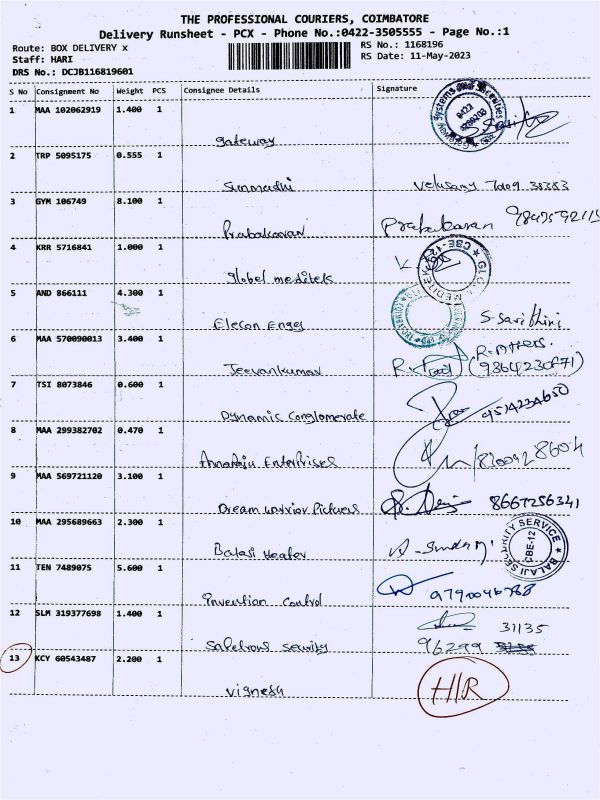 THE PROFESSIONAL COURIERS, COIMBATORE
Delivery Runsheet - PCX - Phone No.:0422-3505555 - Page No.:1
Route: BOX DELIVERY x
RS No.: 1168196
Staff: HARI
RS Date: 11-May-2023
DRS No.: DCJB116819601
S No Consignment No Weight PCS Consignee Details Signature
1 MAA 102062919 1.400 1
gateway
2 TRP 5095175 0.555 1
3 GYM 106749 8.100 1
Prabakaran Prabakaran
4 KRR 5716841 1.000 1
global meditek
5 AND 866111 4.300 1
Elecon Enges S. Sarithini
6 MAA 570090013 3.400 1
Jeevankumar
7 TSI 8073846 0.600 1
Dynamic Conglomerate
8 MAA 299382702 0.470 1
Enterprises
9 MAA 569721120 3.100 1
Dream warrior Pictures 8667256341
10 MAA 295689663 2.300 1
Balaji Heater
BALAJI SECURITY SERVICE
CBE-12
11 TEN 7489075 5.600 1
Invention Control
12 SLM 319377698 1.400 1
31135
security 96299
13 KCY 60543487 2.200 1
Vignesh H/R